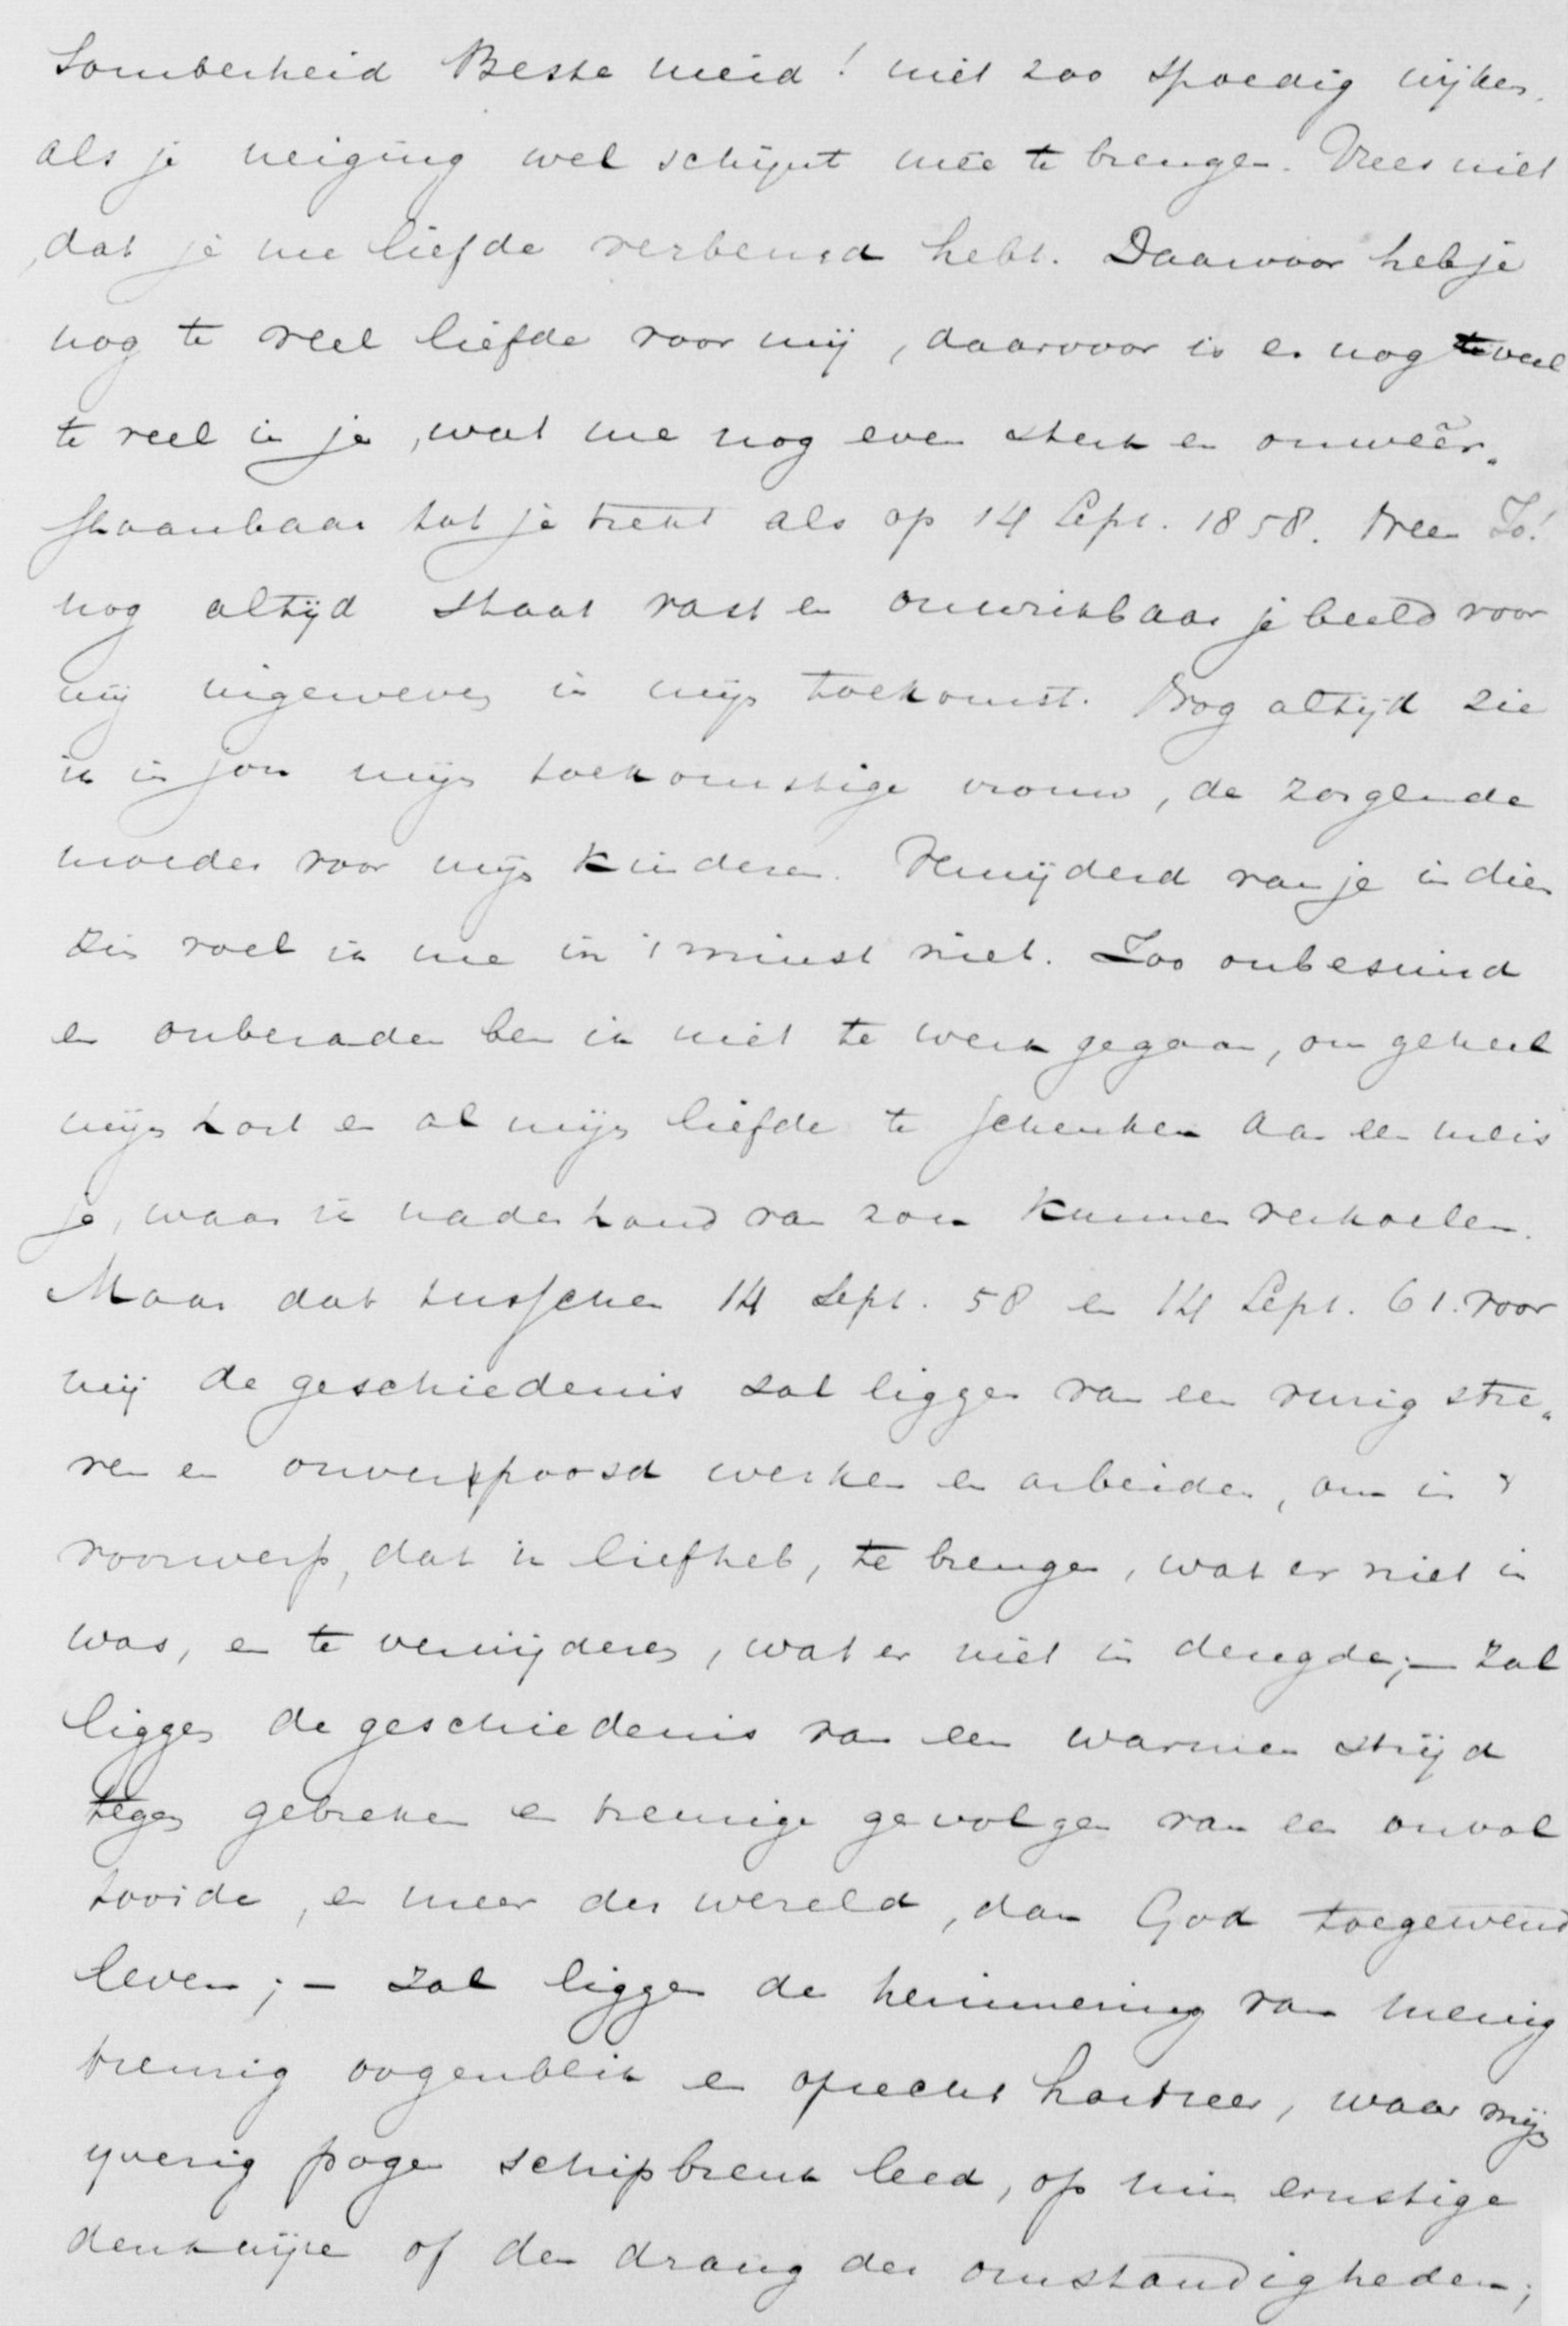 Somberheid Beste meid! niet zoo spoedig wijken,
als je neiging wel schijnt meê te brengen. Vrees niet
dat je me liefde verbeurd hebt. Daarvoor heb je
nog te veel liefde voor mij, daarvoor is er nog te veel
te veel in je, wat me nog even sterk en onweêr„
staanbaar tot je trekt als op 14 Sept. 1858. Neen Jo!
nog altijd staat vast en onwrikbaar je beeld voor
mij ingeweven in mijn toekomst. Nog altijd zie
ik in jou mijn toekomstige vrouw, de zorgende
moeder voor mijn kinderen. Verwijderd van je in dien
zin voel ik me in 't minst niet. Zoo onbesuisd
en onberaden ben ik niet te werk gegaan, om geheel
mijn hart en al mijn liefde te schenken aan een meis
je, waar ik naderhand van zou kunnen verkoelen.
Maar dat tusschen 14 Sept. 58 en 14 Sept. 61. voor
mij de geschiedenis zal liggen van een rusteloos stre„
ven en onverpoosd werken en arbeiden, om in 't
voorwerp, dat ik liefheb, te brengen, wat er niet in
was, en te verwijderen, wat er niet in deugde; — zal
liggen de geschiedenis van een warmen strijd
tegen gebreken en treurige gevolgen van een onvol
tooide, en meer der wereld, dan God toegewend
leven; — zal liggen de herinnering van menig
treurig oogenblik en oprecht hartzeer, waar mijn
yverig pogen schipbreuk leed, op min ernstige
denkwijze of den drang der omstandigheden;